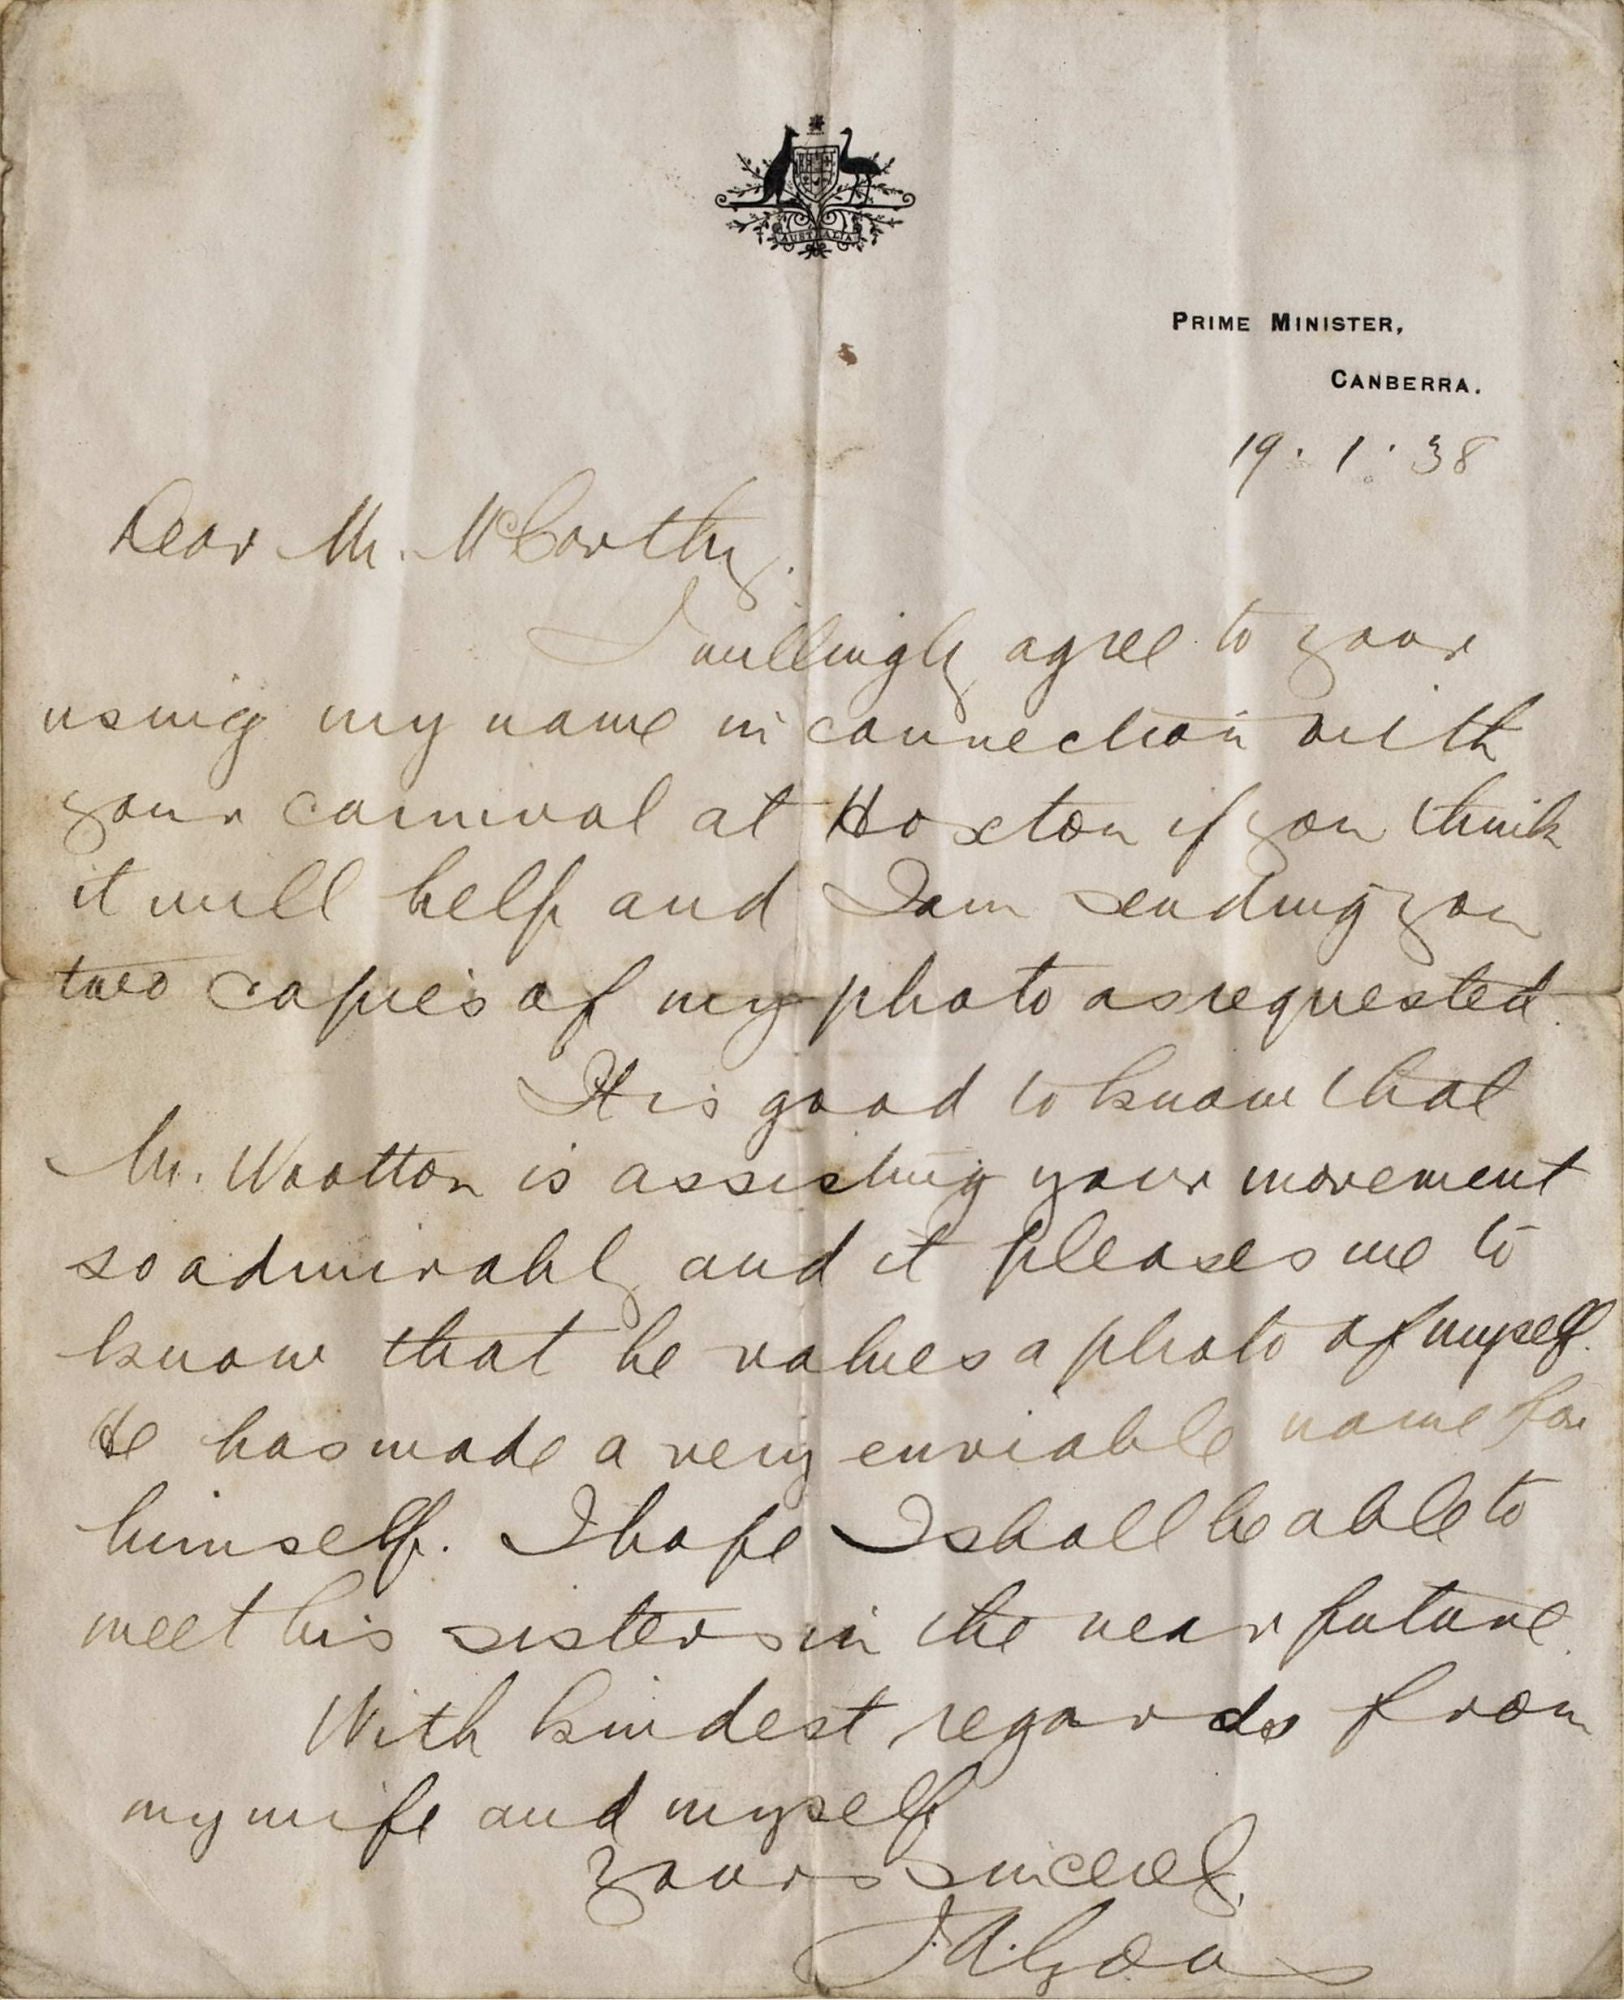 AUSTRALIA
PRIME MINISTER,
CANBERRA.
19.1.38
Dear Mr. McCarthy.
I willingly agree to your
using my name in connection with
your carnival at Hoxton if you think
it will help and I am sending you
two copies of my photo as requested.
It is good to know that
Mr. Wootton is assisting your movement
so admirably and it pleases me to
know that he values a photo of myself.
He has made a very enviable name for
himself. I hope I shall be able to
meet his sisters in the near future.
With kindest regards from
my wife and myself
Yours sincerely,
J. A. Lyons